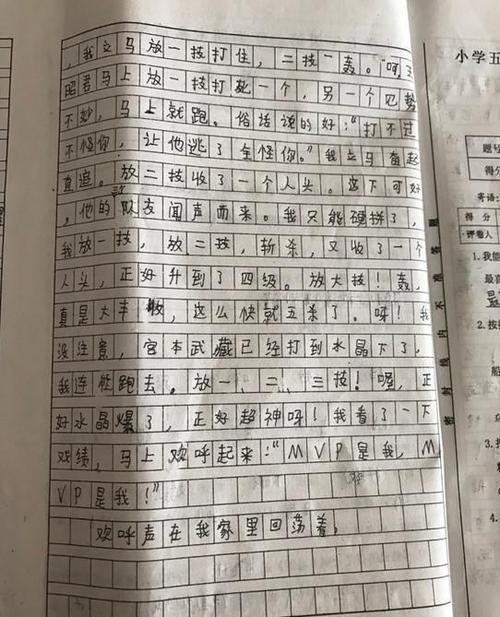 ，我立马放一技打住，二技一轰。呵！王
昭君马上放一技打死一个，另一个见势
不妙，马上就跑。俗话说的好：“打不过
不怪你，让他逃了全怪你。”我立马奋起
直追。放二技收了一个人头。这下可好
，他的队友闻声而来。我只能硬拼了，
我放一技，放二技，斩杀，又收了一个
人头，正好升到了四级。放大技！轰，
真是大丰收，这么快就五杀了。呀！我
没注意，宫本武藏已经打到水晶下了，
我连忙跑去。放一、二、三技！喔，正
好水晶爆了，正好超神呀！我看了一下
战绩，马上欢呼起来：“MVP是我，M
VP是我！”
欢呼声在我家里回荡着。
小学五
题号
得分
寄语：
得分
评卷人
1.我能
最喜
2.按
船
3.
4.
密封线内不准答题